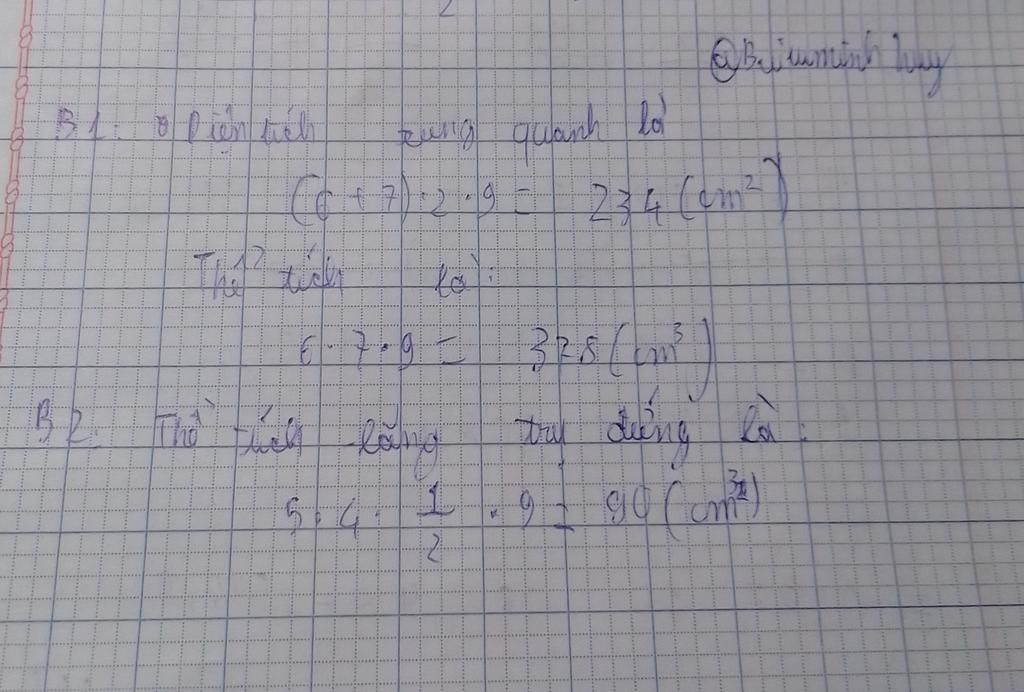 2
B1: Diện tích xung quanh là
(6 + 7) . 2 . 9 = 234 (cm²)
Thể tích là:
6 . 7 . 9 = 378 (cm³)
B2. Thể tích lăng trụ đứng là:
5 . 4 . 1/2 . 9 = 90 (cm³)